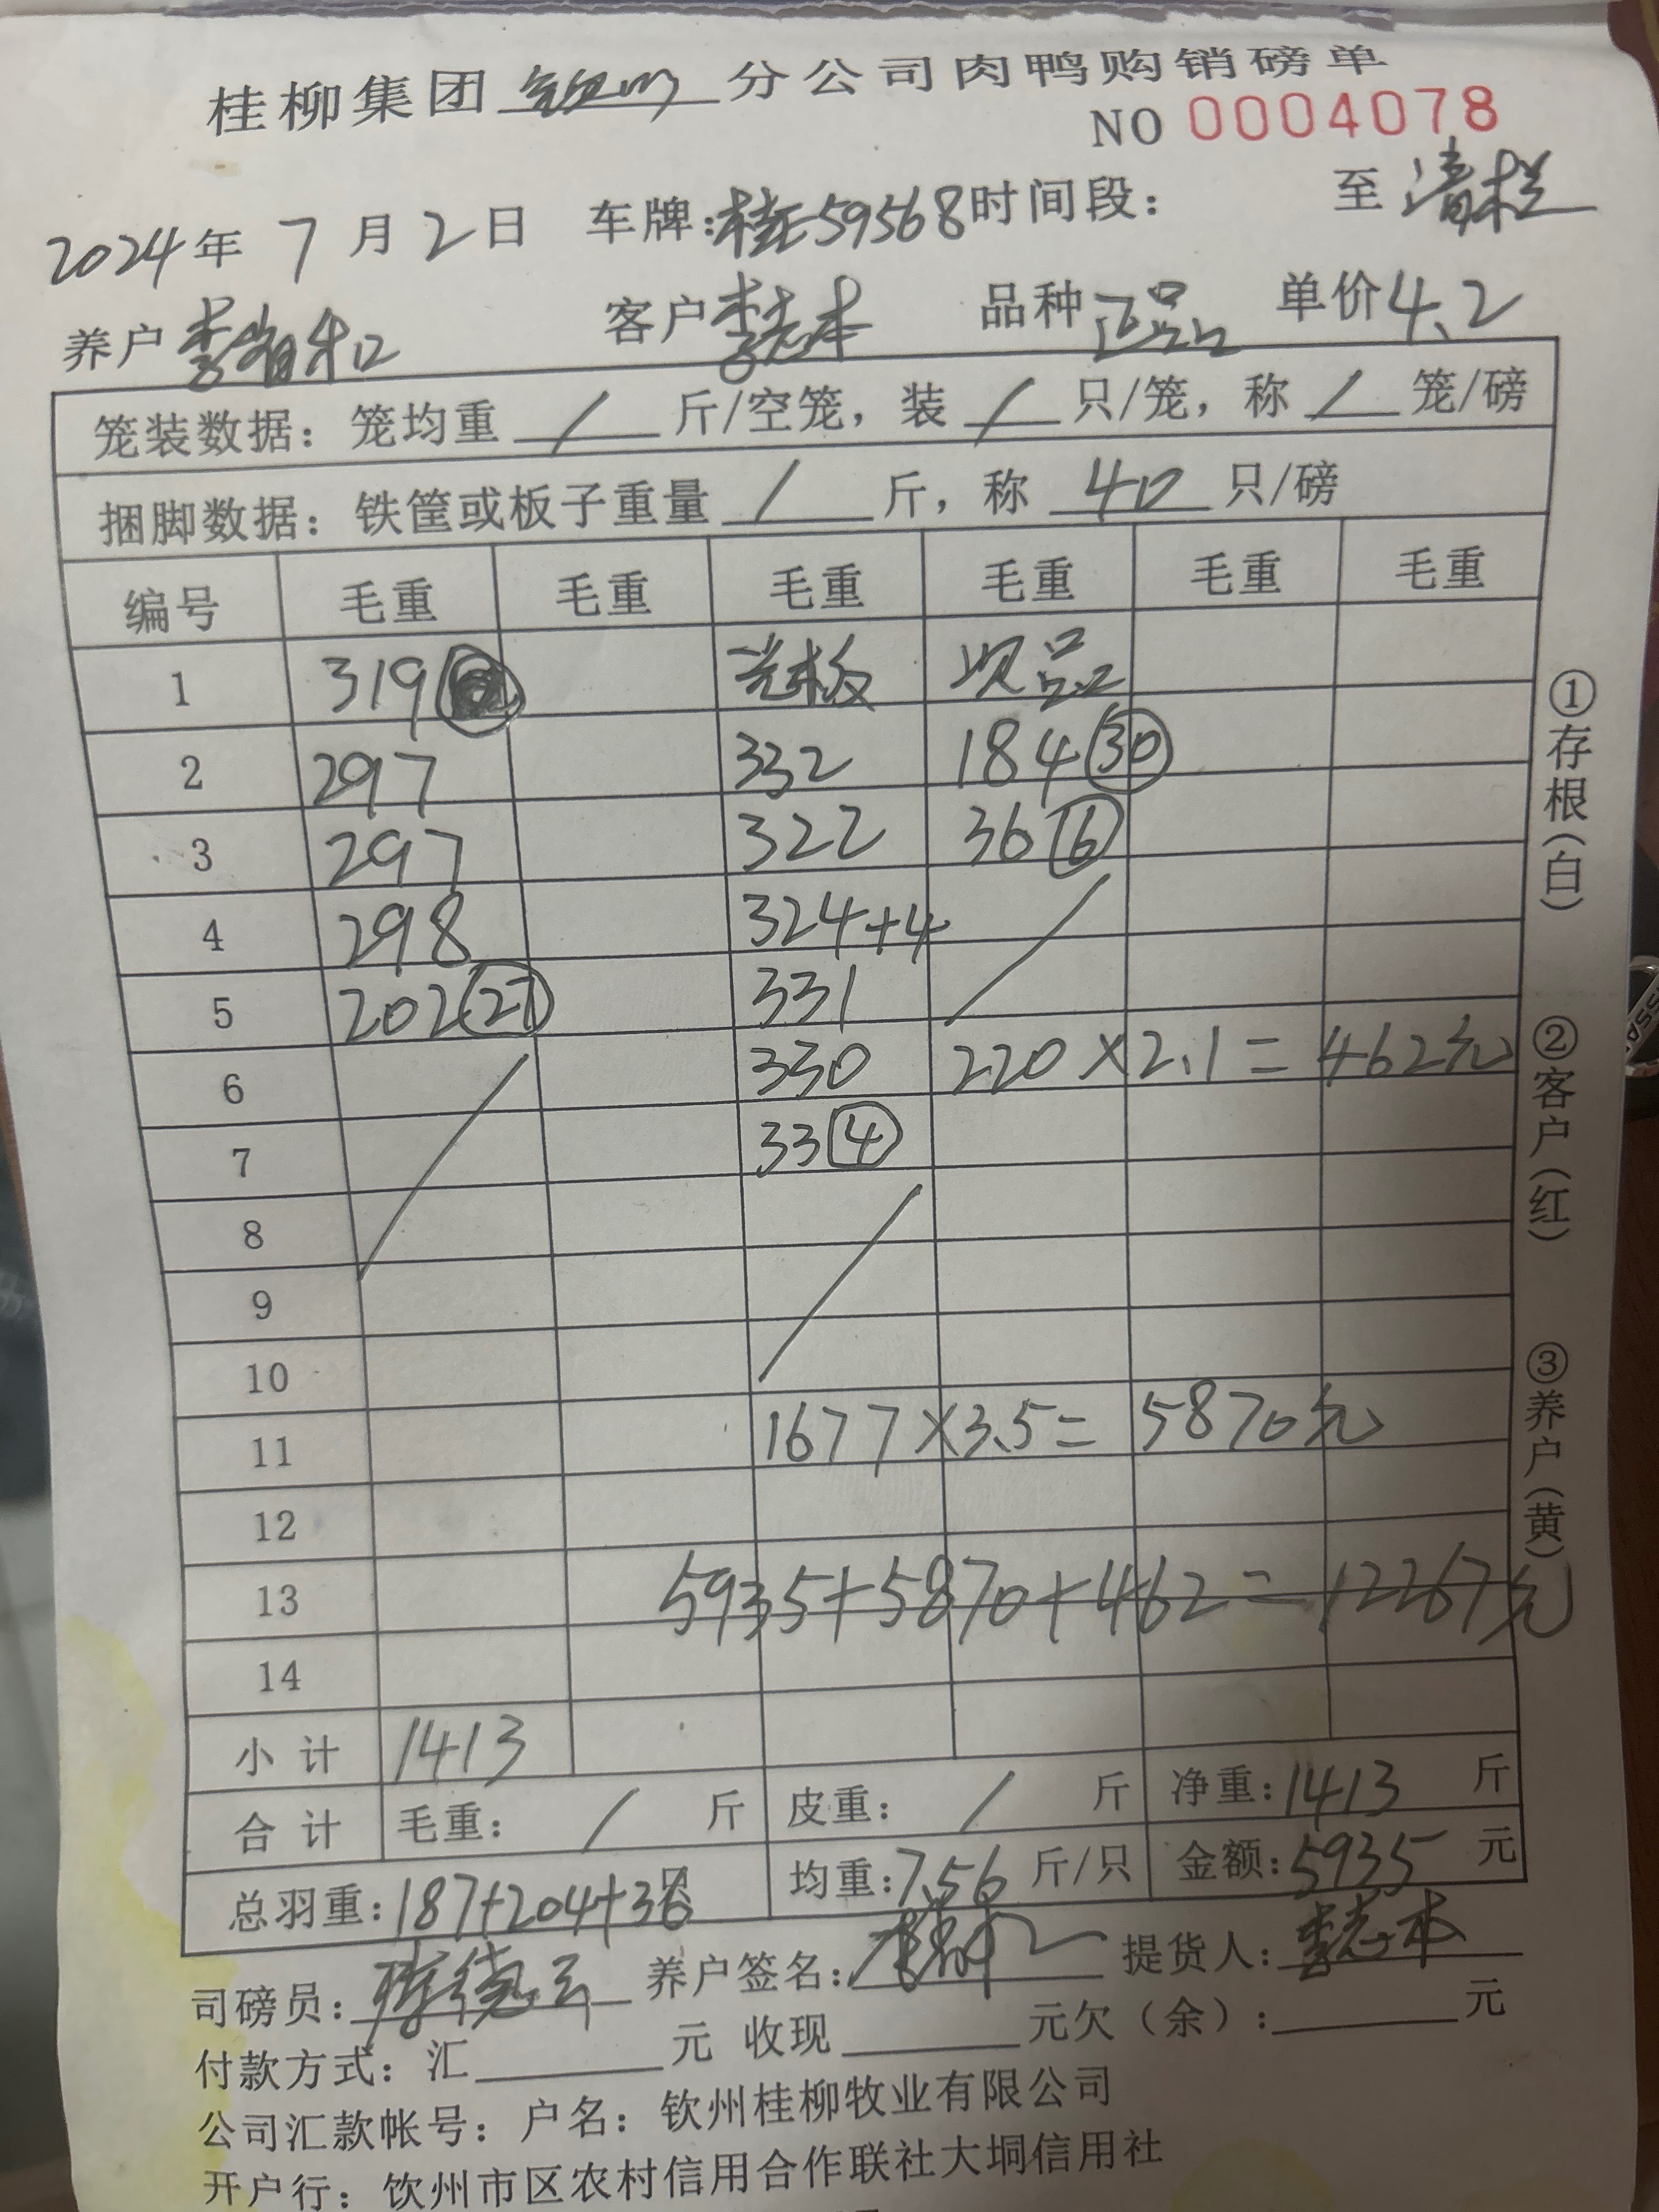 桂柳集团 钦州 分公司肉鸭购销磅单
NO 0004078
2024年 7 月 2 日 车牌:桂E59568 时间段: 至 清栏
养户 客户 李志本 品种 正品 单价 4.2
笼装数据:笼均重 / 斤/空笼,装 / 只/笼,称 / 笼/磅
捆脚数据:铁筐或板子重量 / 斤,称 40 只/磅
编号 毛重 毛重 毛重 毛重 毛重 毛重
1 319 光板 次品
2 297 332 184 (30)
3 297 322 36 (6)
4 298 324+4
5 202 (27) 331
6 330 220×2.1=462元
7 33 (4)
8
9
10
11 1677×3.5=5870元
12
13 5935+5870+462=12267元
14
小计 1413
合计 毛重: / 斤 皮重: / 斤 净重:1413 斤
总羽重:187+204+36只 均重:7.56 斤/只 金额:5935 元
司磅员: 养户签名: 提货人:李志本
付款方式:汇 元 收现 元欠(余): 元
公司汇款帐号:户名:钦州桂柳牧业有限公司
开户行:钦州市区农村信用合作联社大垌信用社
①存根(白) ②客户(红) ③养户(黄)